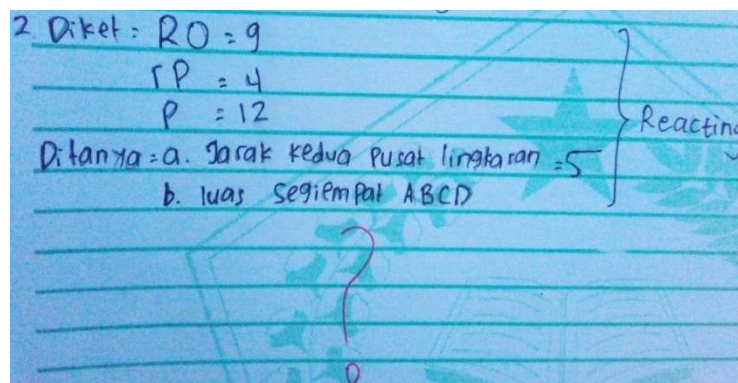 2. Diket : RO = 9
rP = 4
P = 12
Ditanya = a. Jarak kedua pusat lingkaran = 5
b. luas segiempat ABCD
Reacting
?